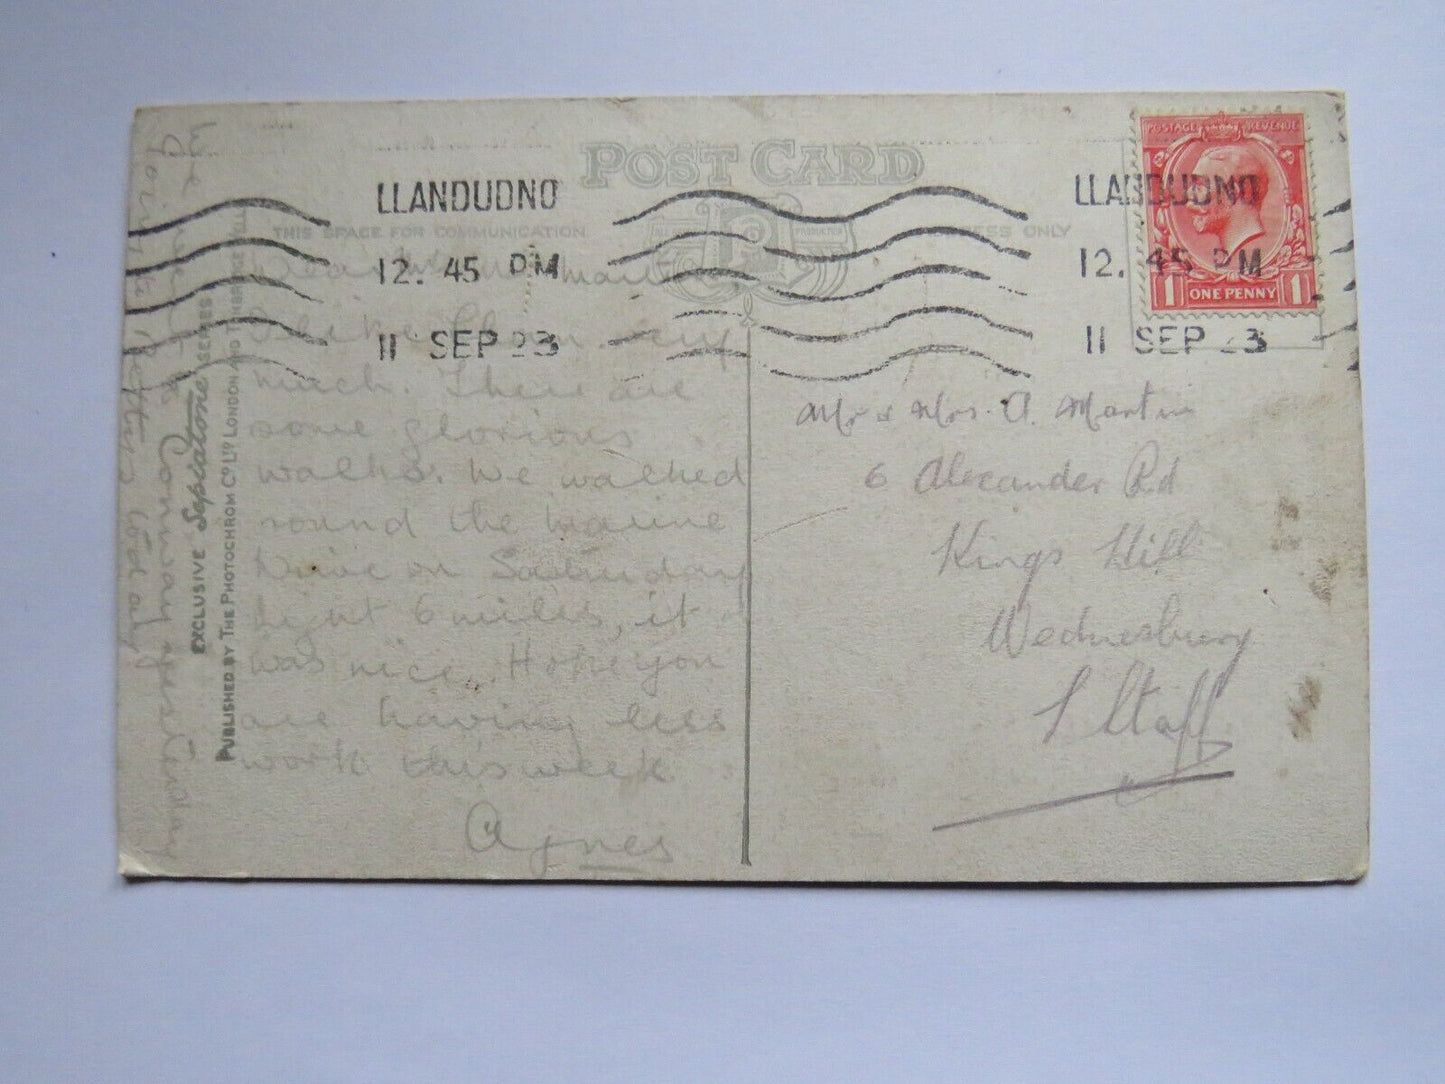 POST CARD
THIS SPACE FOR COMMUNICATION
ADDRESS ONLY
LLANDUDNO
12. 45 PM
11 SEP 23
LLANDUDNO
12. 45 PM
11 SEP 23
POSTAGE REVENUE
1 ONE PENNY 1
Dear
I like very
much. There are
some glorious
walks. We walked
round the Marine
Drive on Saturday
night 6 miles, it
was nice. Hope you
are having less
work this week
Agnes
We went to Conway yesterday
going to today
EXCLUSIVE Sepiatone SERIES
PUBLISHED BY THE PHOTOCHROM CO LTD LONDON AND TUNBRIDGE WELLS
Mr & Mrs. A. Martin
6 Alexander Rd
Kings Hill
Wednesbury
S Staff